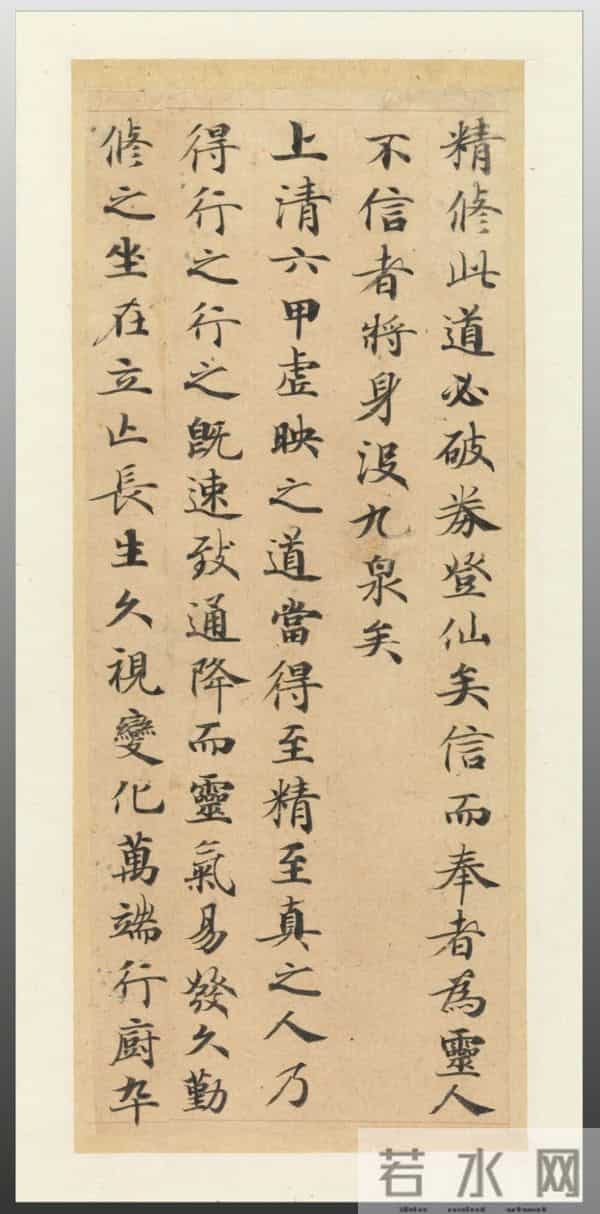 精修此道必破券登仙矣信而奉者為靈人
不信者將身没九泉矣
上清六甲虚映之道當得至精至真之人乃
得行之行之既速致通降而靈氣易發久勤
修之坐在立亡長生久視變化萬端行厨卒
若水网